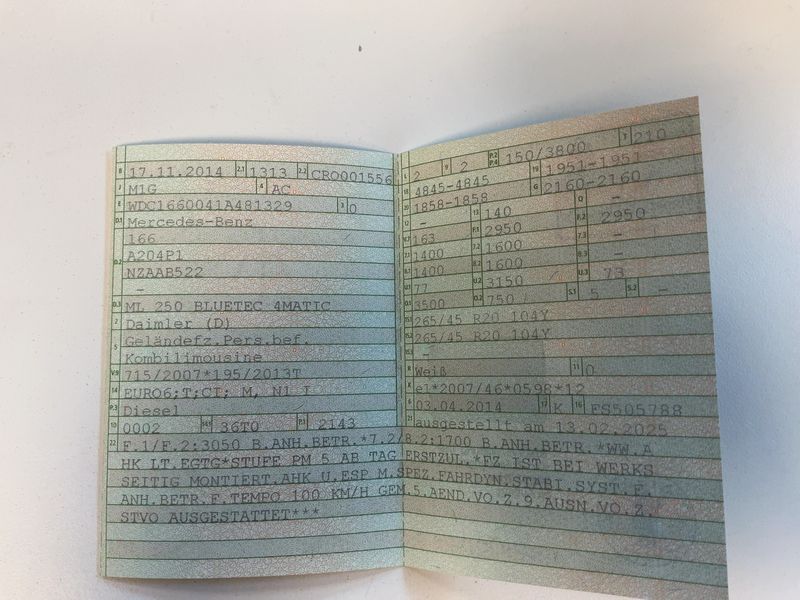 B 17.11.2014 2.1 1313 2.2 CRO001556
J M1G 4 AC
E WDC1660041A481329 3 0
D.1 Mercedes-Benz
166
D.2 A204P1
NZAAB522
-
D.3 ML 250 BLUETEC 4MATIC
2 Daimler (D)
5 Geländefz.Pers.bef.
Kombilimousine
V.9 715/2007*195/2013T
14 EURO6;T;CI; M, N1 I
P.3 Diesel
10 0002 14.1 36T0 P.1 2143
L 2 9 2 P.2 P.4 150/3800 T 210
18 4845-4845 19 1951-1951
20 1858-1858 G 2160-2160
12 - 13 140 Q -
V.7 163 F.1 2950 F.2 2950
7.1 1400 7.2 1600 7.3 -
8.1 1400 8.2 1600 8.3 -
U.1 77 U.2 3150 U.3 73
O.1 3500 O.2 750 S.1 5 S.2 -
15.1 265/45 R20 104Y
15.2 265/45 R20 104Y
15.3 -
R Weiß 11 0
K e1*2007/46*0598*12
6 03.04.2014 17 K 16 FS505788
21 ausgestellt am 13.02.2025
22 F.1/F.2:3050 B.ANH.BETR.*7.2/8.2:1700 B.ANH.BETR.*WW.A
HK LT.EGTG*STUFE PM 5 AB TAG ERSTZUL.*FZ.IST BEI WERKS
SEITIG MONTIERT.AHK U.ESP M.SPEZ.FAHRDYN.STABI.SYST.F.
ANH.BETR.F.TEMPO 100 KM/H GEM.5.AEND.VO.Z.9.AUSN.VO.Z.
STVO AUSGESTATTET***